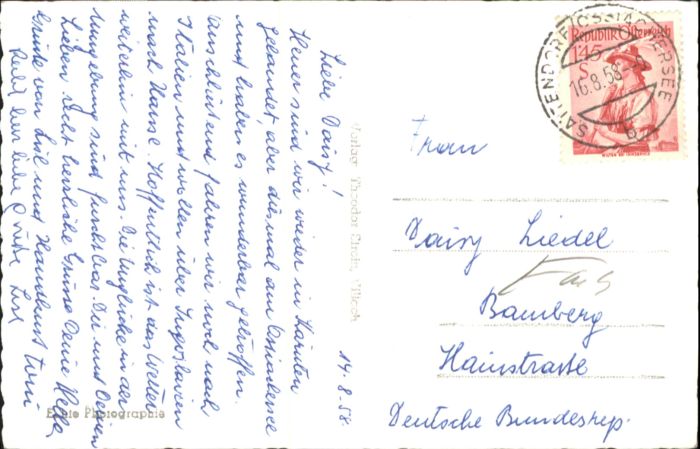 Liebe Daisy!
Heuer sind wir wieder in Kärnten
gelandet, aber diesmal am Ossiachersee
und haben es wunderbar getroffen.
Anschließend fahren wir noch nach
Italien und wollen über Jugoslavien
nach Hause. Hoffentlich ist das Wetter
weiterhin mit uns. Die Unglücke in der
Umgebung sind furchtbar. Dir und Deinen
Lieben recht herzliche Grüße Deine
Grüße von und Toni
Recht herzliche Grüße
14.8.58
Verlag Theodor Villach
Echte Photographie
SATTENDORF (OSSIACHERSEE)
16.8.58
b
Republik Österreich
1·45
S
Frau
Daisy Liedel
Bamberg
Hainstrasse
Deutsche Bundesrep.